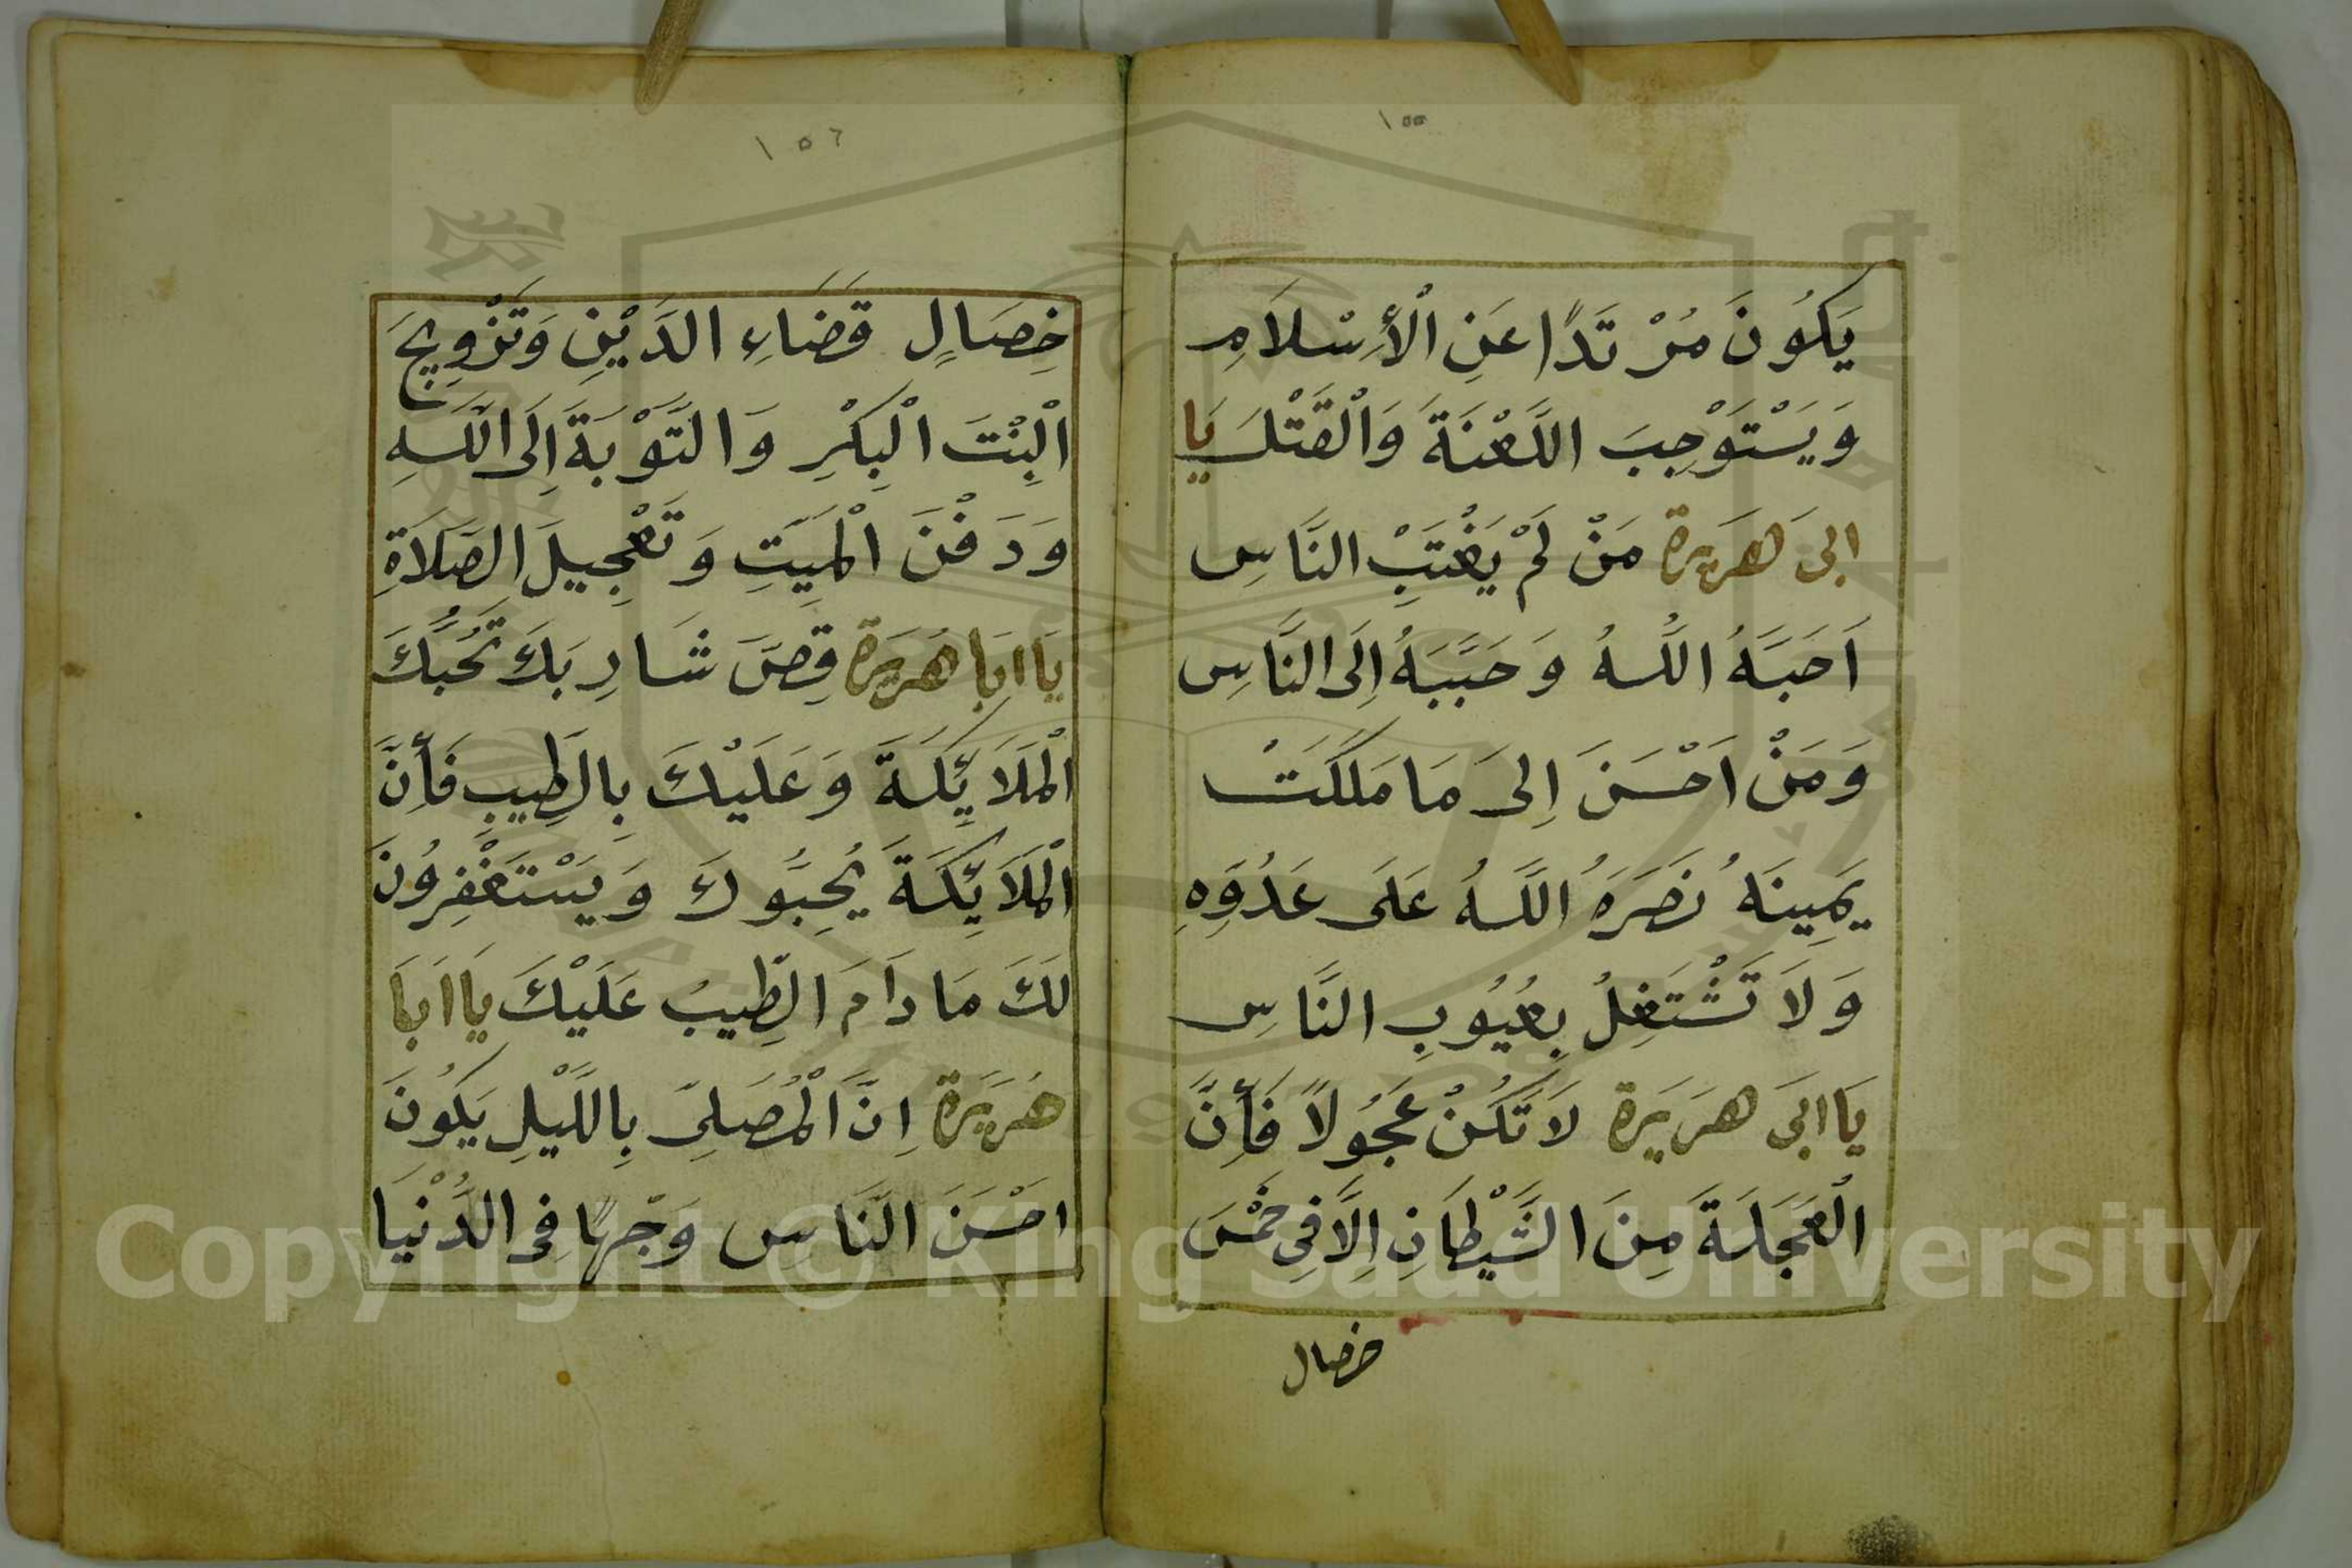 ١٥٥
يَكُونَ مُرْتَدًا عَنِ الْأِسْلَامِ
وَيَسْتَوْجِبَ اللَّعْنَةَ وَالْقَتْلَ يَا
ابىَ هَرَيرة مَنْ لَمْ يَغْتَبْ النَّاسِ
اَحَبَّهُ اللَّهُ وَحَبَّبَهُ اِلَى النَّاسِ
وَمَنْ اَحْسَنَ اِلىَ مَا مَلَكَتْ
يَمِينَهُ نَصَرَهُ اللَّهُ عَلَى عَدُوِّهِ
وَلَا تَشْتَغِلُ بِعُيُوبِ النَّاسِ
يَا ابىَ هرَيَرة لَا تَكُنْ عَجُولاً فَأِنَّ
الْعَجَلَةَ مِنَ الشَّيْطَانِ اِلَّا فِى خَمْسَ
خصال
١٥٦
خِصَالٍ قَضَاءِ الدَيْنِ وَتَزْوِيجَ
الْبِنْتَ الْبِكْرِ وَالتَّوْبَةَ اِلَى اللَّهِ
وَدَفْنَ الْمَيِّتِ وَتَعْجِيلَ الصَلَاةِ
يَا ابَا هُرَيَرة قِصَّ شَارِبَكَ تُحُبَّكَ
الْمَلَائِكَةَ وَعَلَيْكَ بِالطِيبِ فَأِنَّ
الْمَلَائِكَةَ يُحِبُّوكَ وَيَسْتَغْفِرُونَ
لَكَ مَا دَامَ الطِّيبُ عَلَيْكَ يَا ابَا
هُرَيَرة اِنَّ الْمُصَلِىّ بِاللَّيْلِ يَكُونَ
احْسَنَ النَّاسِ وَجْهًا فِى الدُّنْيَا
Copyright © King Saud University